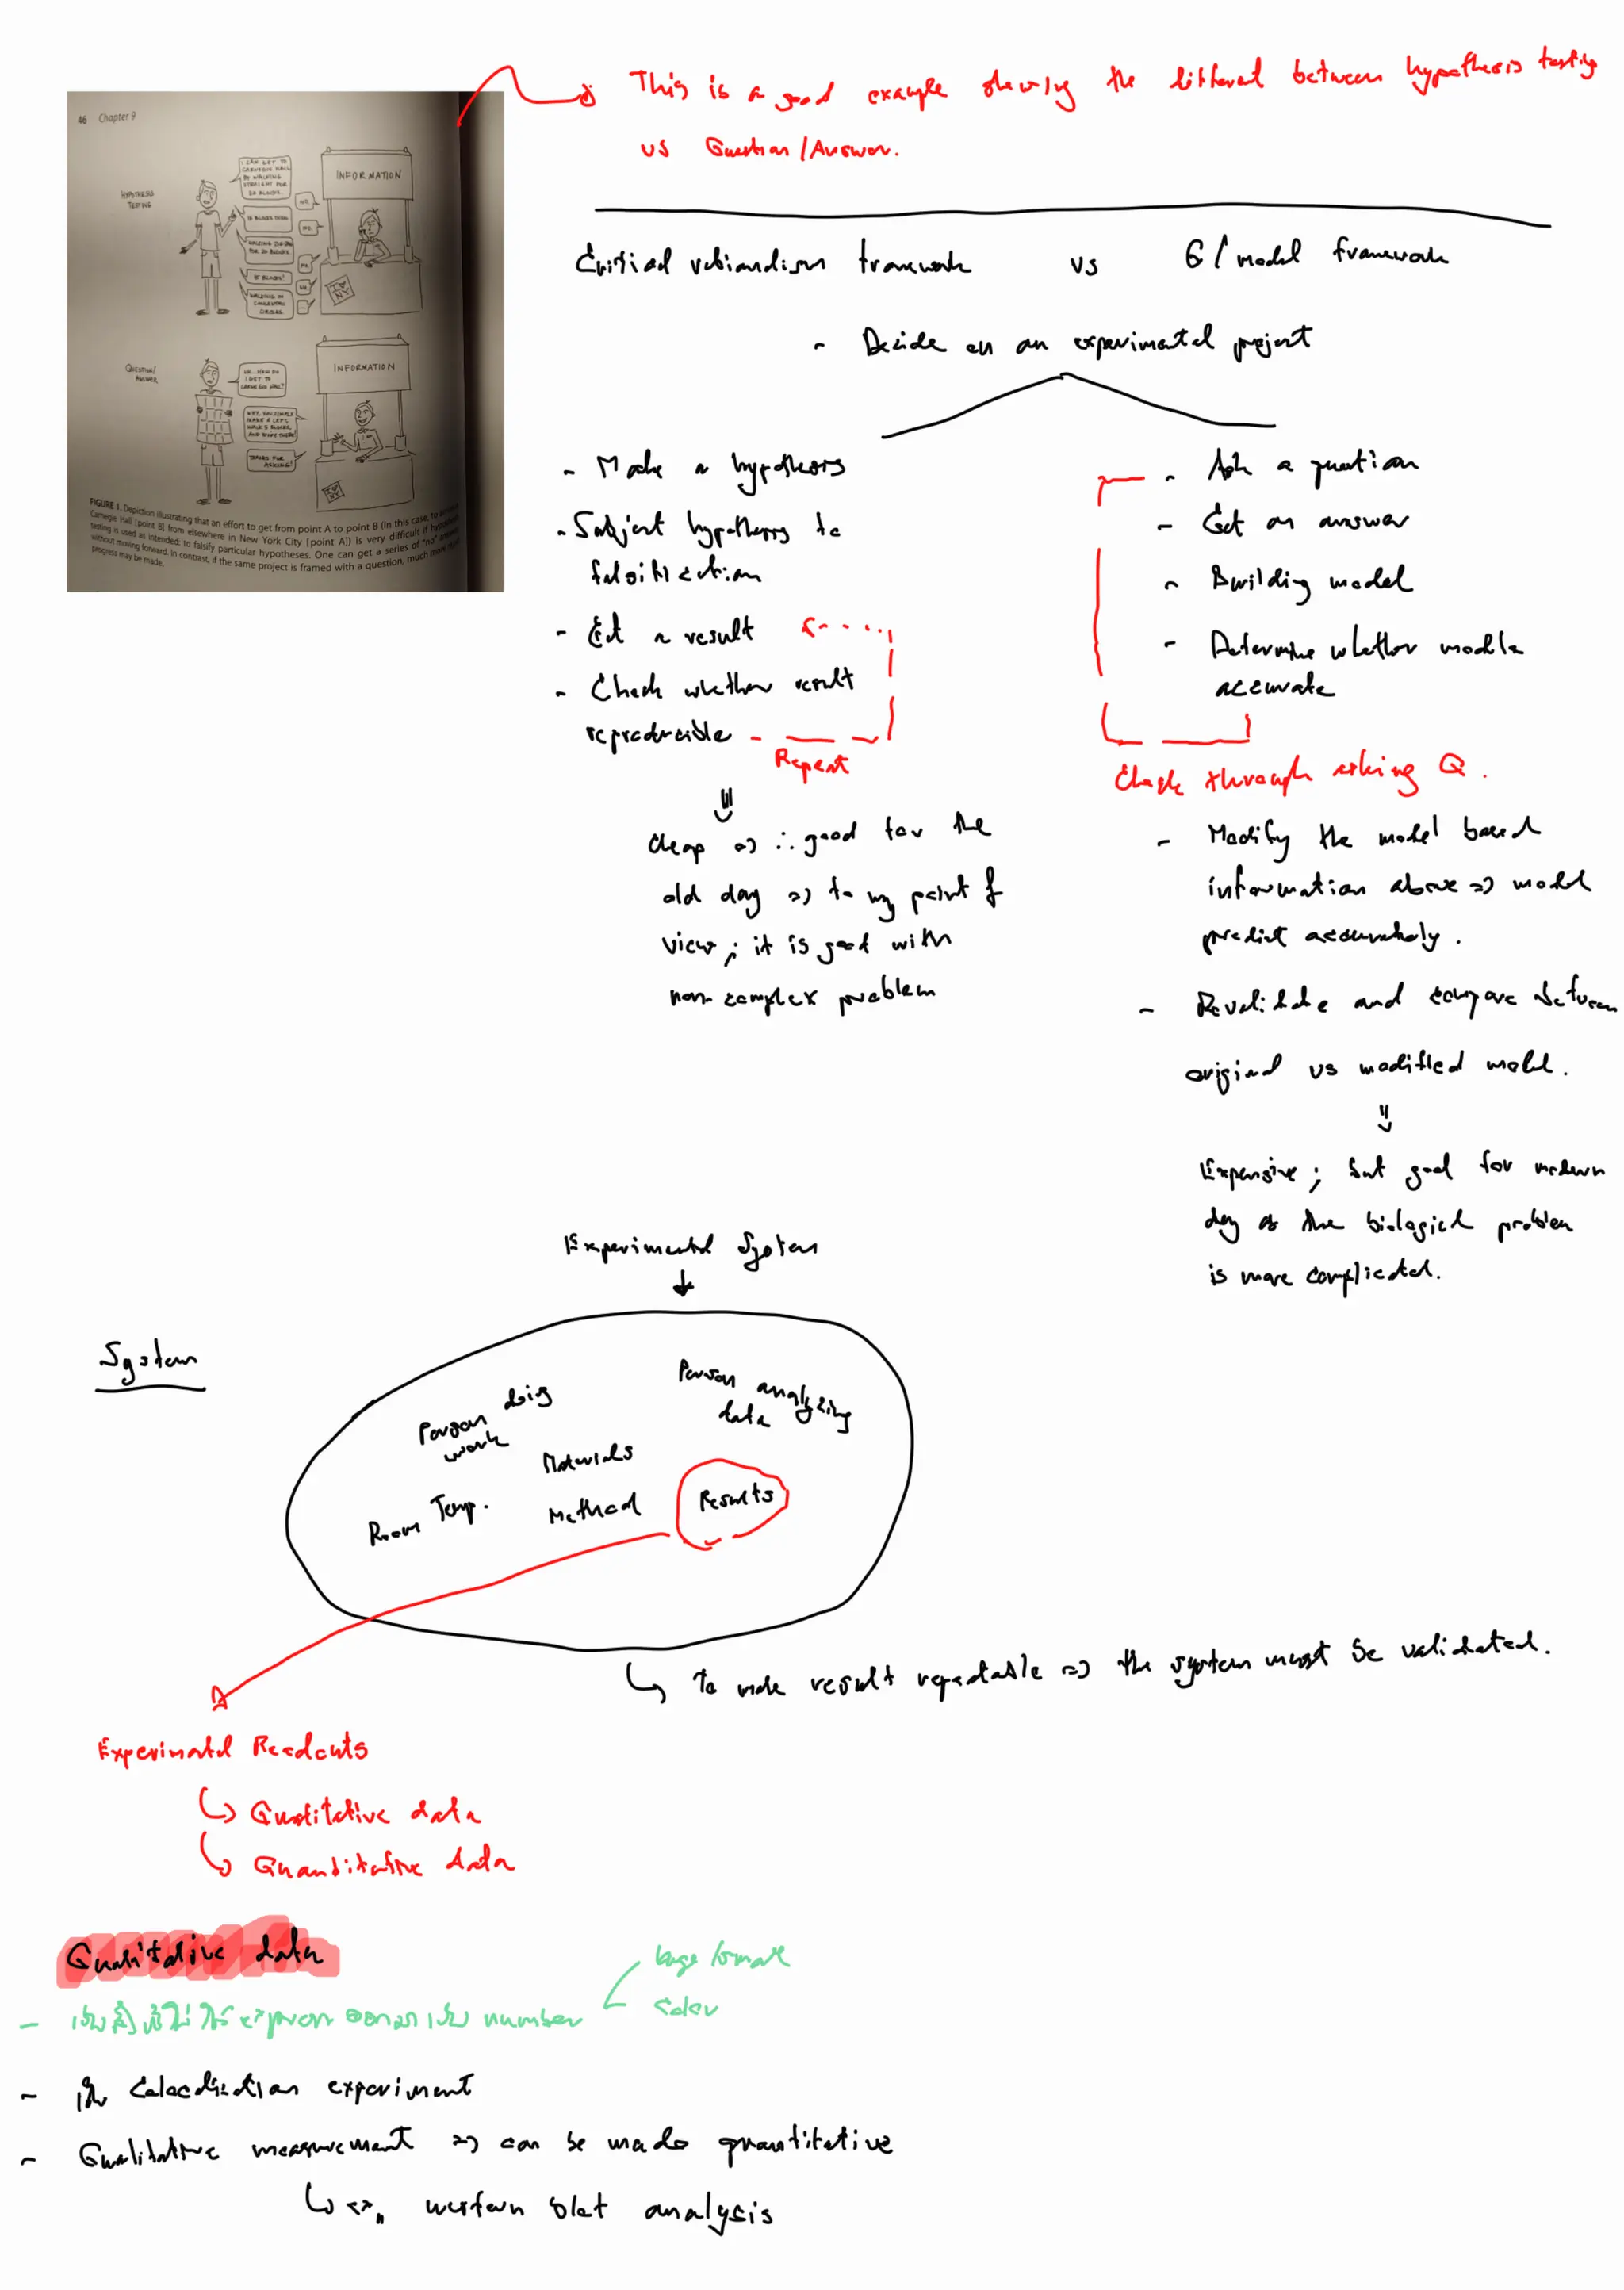 46 Chapter 9
HYPOTHESIS
TESTING
I CAN GET TO
CARNEGIE HALL
BY WALKING
STRAIGHT FOR
20 BLOCKS.
INFORMATION
NO.
NO.
NO.
NO.
WALKING IN
CONCENTRIC
CIRCLES
QUESTION/
ANSWER
UM... HOW DO
I GET TO
CARNEGIE HALL?
INFORMATION
WHY, YOU SIMPLY
MAKE A LEFT,
WALK 5 BLOCKS,
AND RIGHT THERE!
THANKS FOR
ASKING!
FIGURE 1. Depiction illustrating that an effort to get from point A to point B (in this case, to
Carnegie Hall [point B] from elsewhere in New York City [point A]) is very difficult if hypothesis
testing is used as intended: to falsify particular hypotheses. One can get a series of "no" answers
without moving forward. In contrast, if the same project is framed with a question, much more
progress may be made.
This is a good example showing the between hypothesis testing
vs Question/Answer.
framework vs Q/model framework
- Decide on an experimental project
- Make a hypothesis
- Subject hypothesis to
falsification
- Get a result
- Check whether result
reproducible
Repeat
cheap => ∴ good for the
old day => to my point of
view; it is good with
non-complex problem
- Ask a question
- Get an answer
- Building model
- Determine whether models
accurate
Check through asking Q.
- Modify the model based
information above => model
predict accurately.
- Revalidate and compare between
original vs modified model.
Expensive; but good for modern
day as the biological problem
is more complicated.
Experimental System
System
Person doing
work
Person analyzing
data
Materials
Room Temp.
Method
Results
To make result repeatable => the system must be validated.
Experimental Readouts
Qualitative data
Quantitative data
Qualitative data
- เป็นสิ่งที่ไม่ได้ express ออกมาเป็น number
color
- experiment
- Qualitative measurement => can be made quantitative
ex. western blot analysis